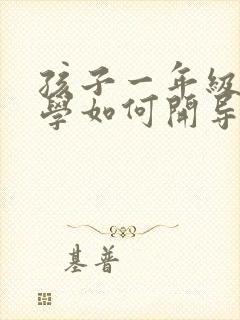 孩子一年級
學如何開导
基普